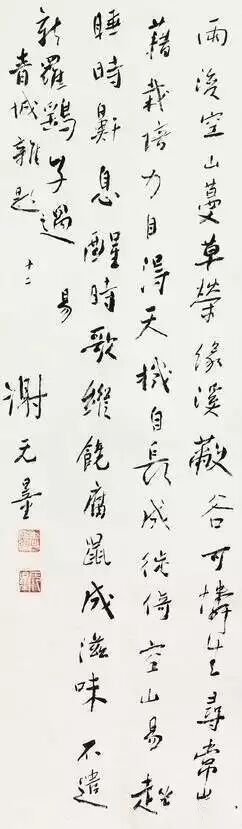 雨後空山蔓草榮緣溪蔽谷可憐生尋常豈
藉栽培力自得天機自長成徙倚空山易
睡時鼾息醒時歌縱饒腐鼠成滋味不遣
新羅鷂子過
易
青城雜題 十二
謝无量